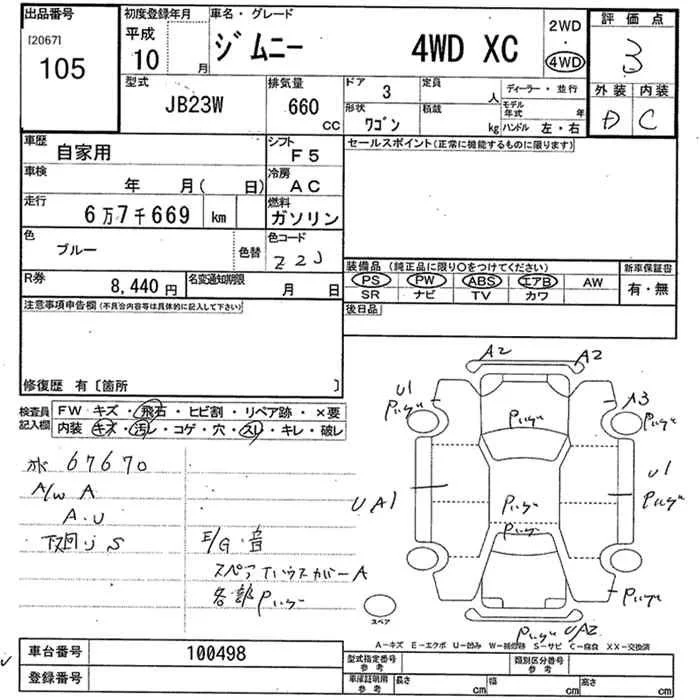 出品番号
[2067]
105
初度登録年月
平成
10 月
車名・グレード
ジムニー 4WD XC
2WD
・
4WD
評価点
3
外装 内装
D C
型式
JB23W
排気量
660
CC
ドア
3
定員
人
形状
ワゴン
積載
kg
ディーラー・並行
モデル年式 年
ハンドル 左・右
車歴
自家用
シフト
F5
セールスポイント(正常に機能するものに限ります)
車検
年 月( 日)
冷房
AC
走行
6万7千669 km
燃料
ガソリン
色
ブルー
色替
色コード
Z2J
R券
8,440 円
名変通知期限
月 日
装備品 (純正品に限り〇をつけてください)
新車保証書
PS PW ABS エアB AW
有・無
SR ナビ TV カワ
後日品
注意事項申告欄(不具合内容等は具体的に記入して下さい)
修復歴 有〔箇所 〕
検査員記入欄
FW キズ・飛石・ヒビ割・リペア跡・×要
内装・キズ・汚レ・コゲ・穴・スレ・キレ・破レ
67670
A/W A
A・U
下回り S
E/G・音
スペアTハウスカバーA
各部
A2 A2
U1
A3
UA1
U1
UA2
スペア
A-キズ E-エクボ U-凹み W-補修跡 S-サビ C-腐食 XX-交換済
車台番号
100498
登録番号
型式指定番号
参考
類別区分番号
参考
車庫証明用
参考
長さ cm
幅 cm
高さ cm